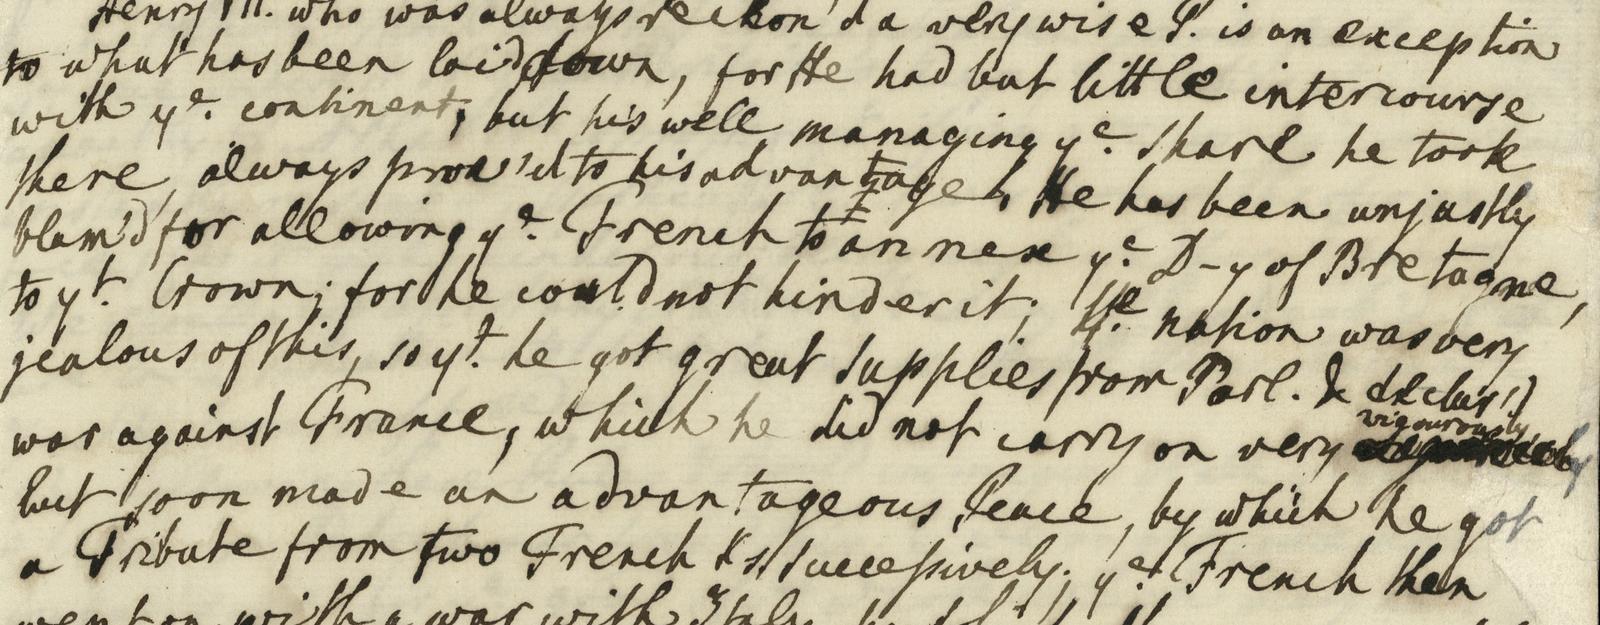 Henry VII. who was always reckon'd a very wise P. is an exception
to what has been laid down, for He had but little intercourse
with ye. continent, but his well managing ye. share he took
there, always prov'd to his advantage, He has been unjustly
blam'd for allowing ye. French to annex ye. D-y of Bretagne,
to yt. Crown; for he could not hinder it; ye. nation was very
jealous of this, so yt. he got great supplies from Parl. & declar'd
war against France, which he did not carry on very vigourously
but soon made an advantageous Peace, by which he got
a Tribute from two French Ks. successively. ye. French then
went on with a war with Italy